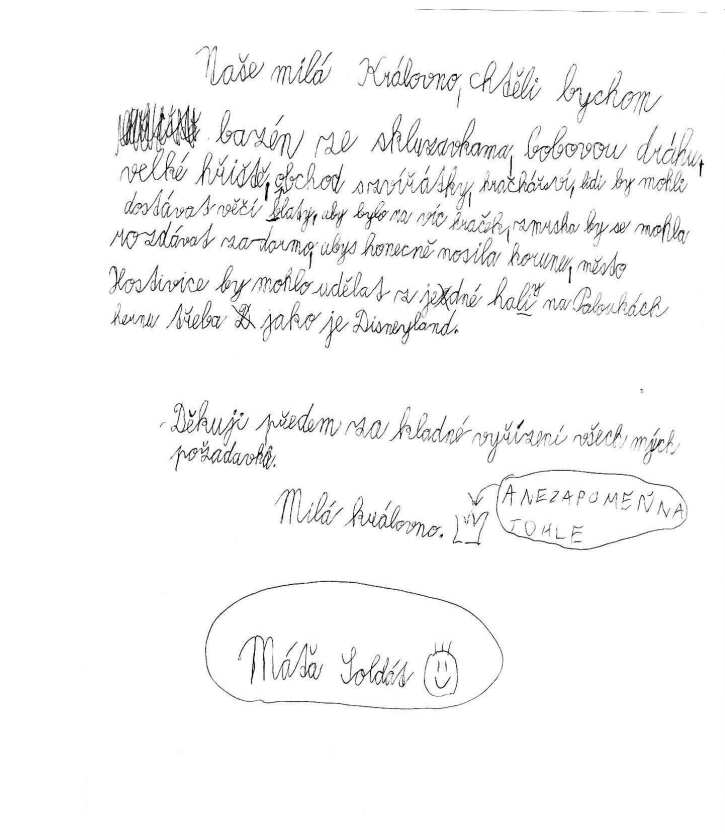 Naše milá Královno, chtěli bychom
bazén ze skluzavkama, bobovou dráhu,
velké hřiště, obchod s zvířátky, hračkářství, lidi by mohli
dostávat věčí platy, aby bylo na víc hraček, zmrska by se mohla
rozdávat zadarmo, abys konečně nosila korunu, město
Hostivice by mohlo udělat z jedné haly na Paloukách
hernu třeba jako je Disneyland.
Děkuji předem za kladné vyřízení všech mých
požadavků.
Milá královno.
A NEZAPOMEŇ NA
TOHLE
Máťa Soldát